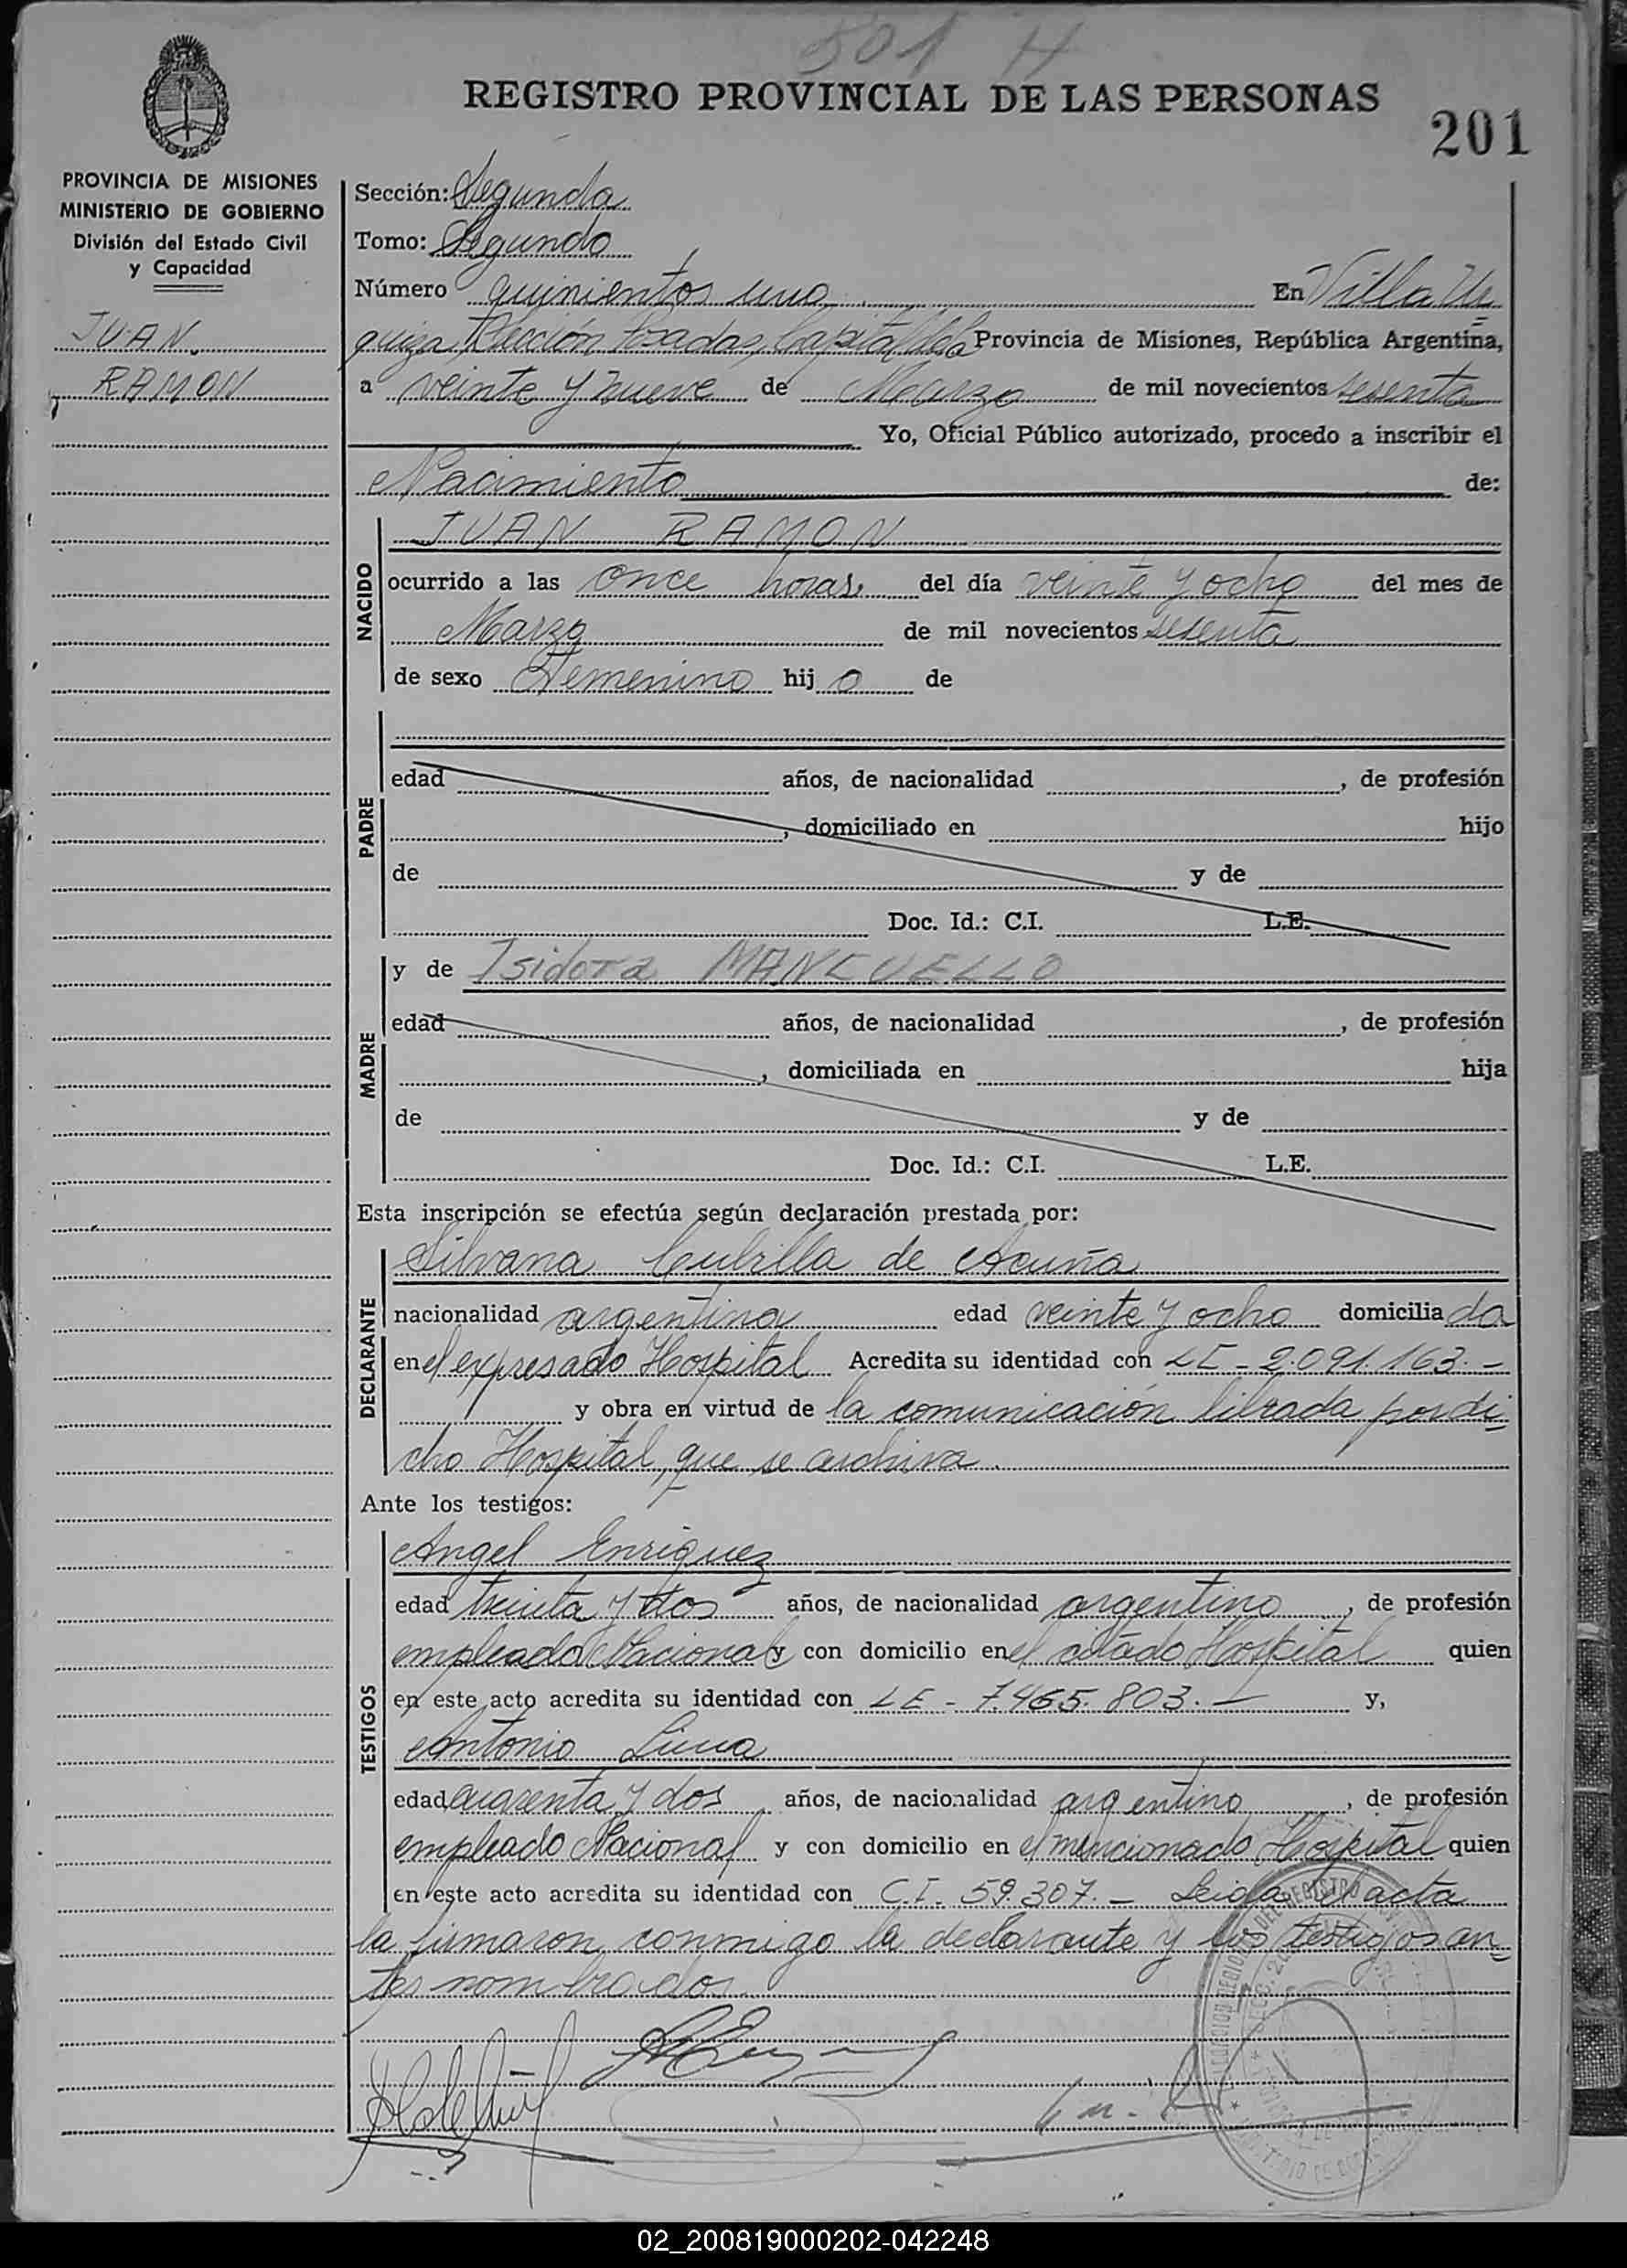 501 H
REGISTRO PROVINCIAL DE LAS PERSONAS
201
PROVINCIA DE MISIONES
MINISTERIO DE GOBIERNO
División del Estado Civil
y Capacidad
JUAN
RAMON
Sección: Segunda
Tomo: Segundo
Número quinientos uno En Villa Ur
quiza, Sección Posadas, Capital de la Provincia de Misiones, República Argentina,
a veinte y nueve de Marzo de mil novecientos sesenta
Yo, Oficial Público autorizado, procedo a inscribir el
Nacimiento de:
NACIDO
JUAN RAMON
ocurrido a las once horas, del día veinte y ocho del mes de
Marzo de mil novecientos sesenta
de sexo Femenino hij o de
PADRE
edad años, de nacionalidad , de profesión
, domiciliado en hijo
de y de
Doc. Id.: C.I. L.E.
MADRE
y de Isidora MANCUELLO
edad años, de nacionalidad , de profesión
, domiciliada en hija
de y de
Doc. Id.: C.I. L.E.
Esta inscripción se efectúa según declaración prestada por:
DECLARANTE
Silvana Cubilla de Acuña
nacionalidad argentina edad veinte y ocho domicilia da
en el expresado Hospital Acredita su identidad con LC - 2.091.163.-
y obra en virtud de la comunicación librada por di
cho Hospital, que se archiva.
Ante los testigos:
TESTIGOS
Angel Enriquez
edad treinta y dos años, de nacionalidad argentino , de profesión
empleado Nacional y con domicilio en el citado Hospital quien
en este acto acredita su identidad con LE - 7.465.803.- y,
Antonio Luna
edad cuarenta y dos años, de nacionalidad argentino , de profesión
empleado Nacional y con domicilio en el mencionado Hospital quien
en este acto acredita su identidad con C.I. 59.307.- Leida el acta
la firmaron conmigo la declarante y los testigos an
tes nombrados.
02_200819000202-042248